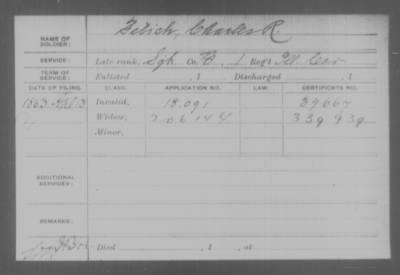 NAME OF SOLDIER: Charles R.
SERVICE: Late rank, Sgt. Co. 1 Reg't Ill. Cav.
TERM OF SERVICE: Enlisted , 1 Discharged , 1
DATE OF FILING. CLASS. APPLICATION NO. LAW. CERTIFICATE NO.
1863 Invalid, 18.091
Widow, 206144 339939
Minor,
ADDITIONAL SERVICES:
REMARKS:
Died , 1 , at